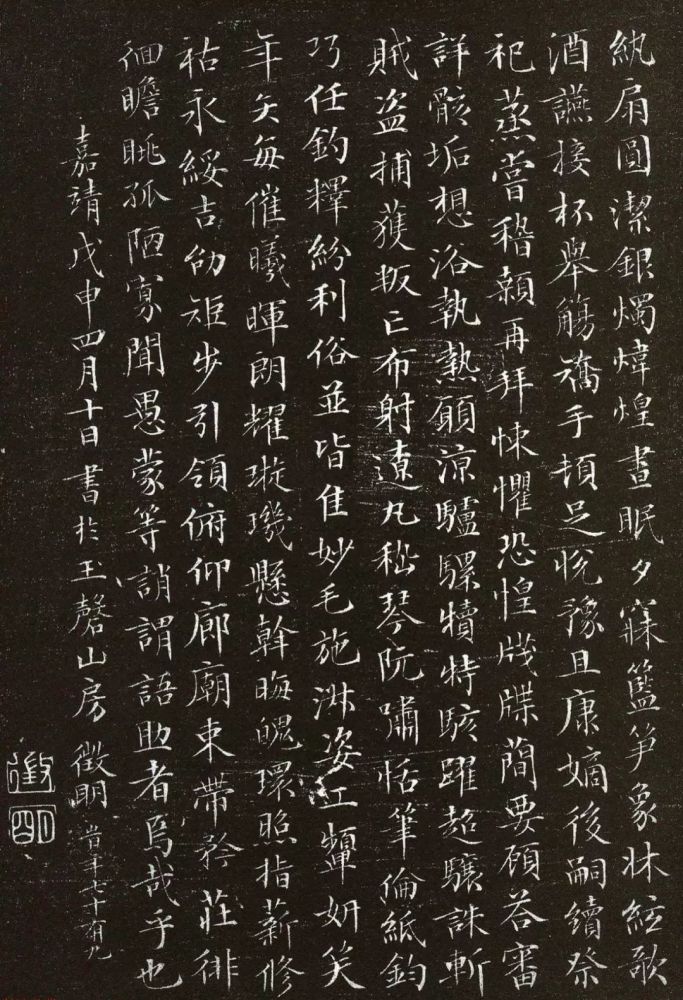 紈扇圓潔銀燭煒煌晝眠夕寐籃笋象牀絃歌
酒讌接杯舉觴矯手頓足悅豫且康嫡後嗣續祭
祀蒸嘗稽顙再拜悚懼恐惶牋牒簡要顧荅審
詳骸垢想浴執熱願涼驢騾犢特駭躍超驤誅斬
賊盜捕獲叛亡布射遼丸嵇琴阮嘯恬筆倫紙鈞
巧任釣釋紛利俗並皆佳妙毛施淑姿工顰妍笑
年矢每催曦暉朗耀璇璣懸斡晦魄環照指薪修
祜永綏吉劭矩步引領俯仰廊廟束帶矜莊徘
徊瞻眺孤陋寡聞愚蒙等誚謂語助者焉哉乎也
嘉靖戊申四月十日書於玉磬山房徵明旹年七十有九
徵明